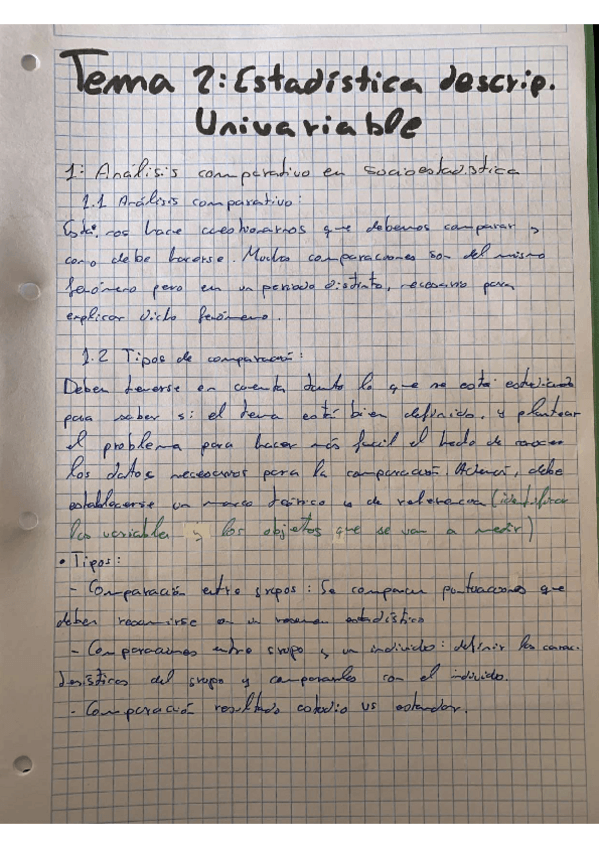 Tema 2: Estadística descrip.
Univariable
1: Análisis comparativo en socioestadistica
1.1 Análisis comparativo:
Esta nos hace cuestionarnos que debemos comparar y
como debe hacerse. Muchas comparaciones son del mismo
fenómeno pero en un periodo distinto, necesario para
explicar dicho fenómeno.
1.2 Tipos de comparación:
Deben tenerse en cuenta tanto lo que se está estudiando
para saber si el tema está bien definido, y plantear
el problema para hacer más facil el hecho de conocer
los datos necesarios para la comparación. Además, debe
establecerse un marco teórico y de referencia (identificar
las variables y los objetos que se van a medir)
• Tipos:
- Comparación entre grupos: Se comparan puntuaciones que
deben resumirse en un resumen estadístico
- Comparaciones entre grupo y un individuo: definir las carac-
terísticas del grupo y compararlas con el individuo.
- Comparación resultado estudio vs estandar.